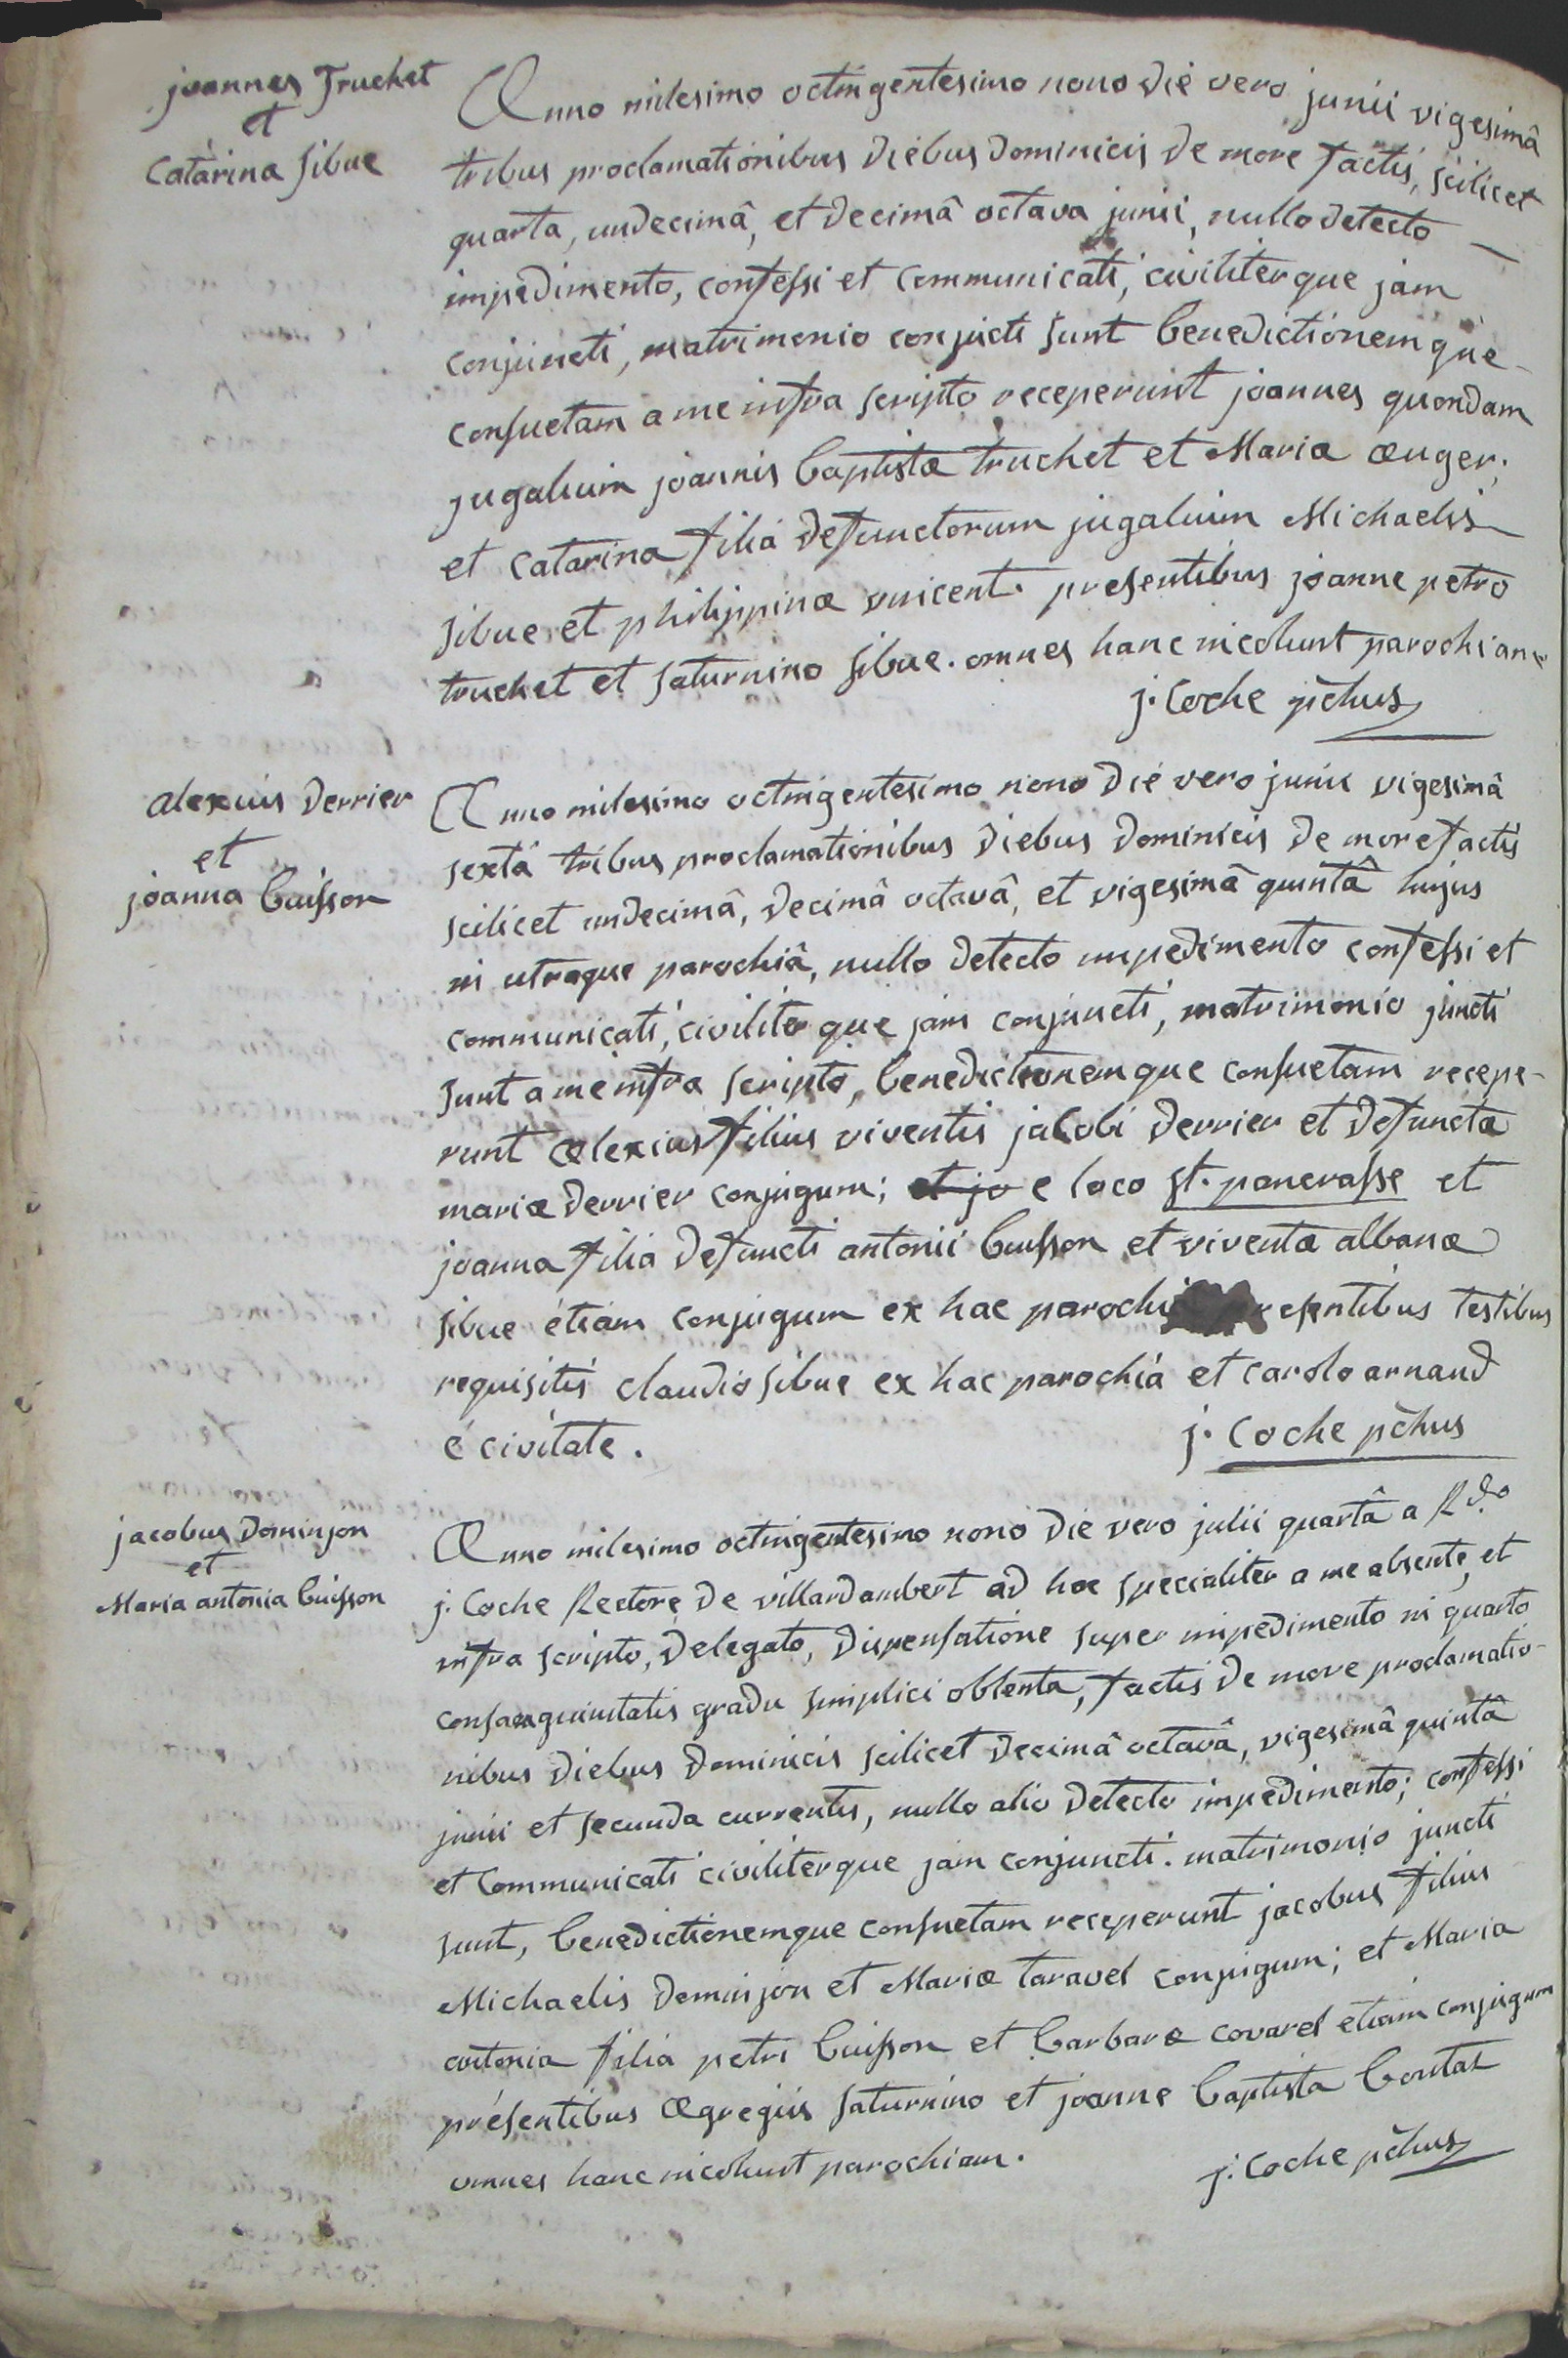 joannes Truchet
et
Catarina sibue
Anno milesimo octingentesimo nono die vero junii vigesimâ
tribus proclamationibus diebus dominicis de more factis, scilicet
quarta, undecimâ, et decimâ octava junii, nullo detecto
impedimento, confessi et communicati, civiliterque jam
conjuncti, matrimonio conjucti sunt benedictionemque
consuetam a me infra scripto receperunt joannes quondam
jugalium joannis baptistæ truchet et Mariæ auger;
et catarina filia defunctorum jugalium Michaelis
sibue et philippinæ vincent. presentibus joanne petro
truchet et saturnino sibue. omnes hanc incolunt parochiam
j. Coche pchus
alexius derrier
et
joanna buisson
Anno milesimo octingentesimo nono die vero junii vigesimâ
sexta tribus proclamationibus diebus dominicis de more factis
scilicet undecimâ, decimâ octavâ, et vigesimâ quintâ hujus
in utraque parochiâ, nullo detecto impedimento confessi et
communicati, civiliterque jam conjuncti, matrimonio juncti
sunt a me infra scripto, benedictionemque consuetam recepe-
runt alexius filius viventis jacobi derrier et defunctæ
mariæ derrier conjugum; et jo e loco st. pancrasse et
joanna filia defuncti antonii buisson et viventæ albanæ
sibue étiam conjugum ex hac parochia presentibus testibus
requisitis claudio sibue ex hac parochiá et carolo arnaud
é civitate.
j. Coche pchus
jacobus dominjon
et
Maria antonia buisson
Anno milesimo octingentesimo nono die vero julii quartâ a Rdo
j. Coche Rectore de villardambert ad hoc specialiter a me absente, et
infra scripto, delegato, dispensatione super impedimento in quarto
consanguinitatis gradu simplici obtenta, factis de more proclamatio-
nibus diebus dominicis scilicet decimâ octavâ, vigesimâ quintâ
junii et secunda currentis, nullo alio detecto impedimento; confessi
et communicati civiliterque jam conjuncti. matrimonio juncti
sunt, benedictionemque consuetam receperunt jacobus filius
Michaelis dominjon et Mariæ taravel conjugum; et Maria
antonia filia petri buisson et barbaræ covarel etiam conjugum
présentibus ægregiis saturnino et joanne baptista boutaz
omnes hanc incolunt parochiam.
j. Coche pchus